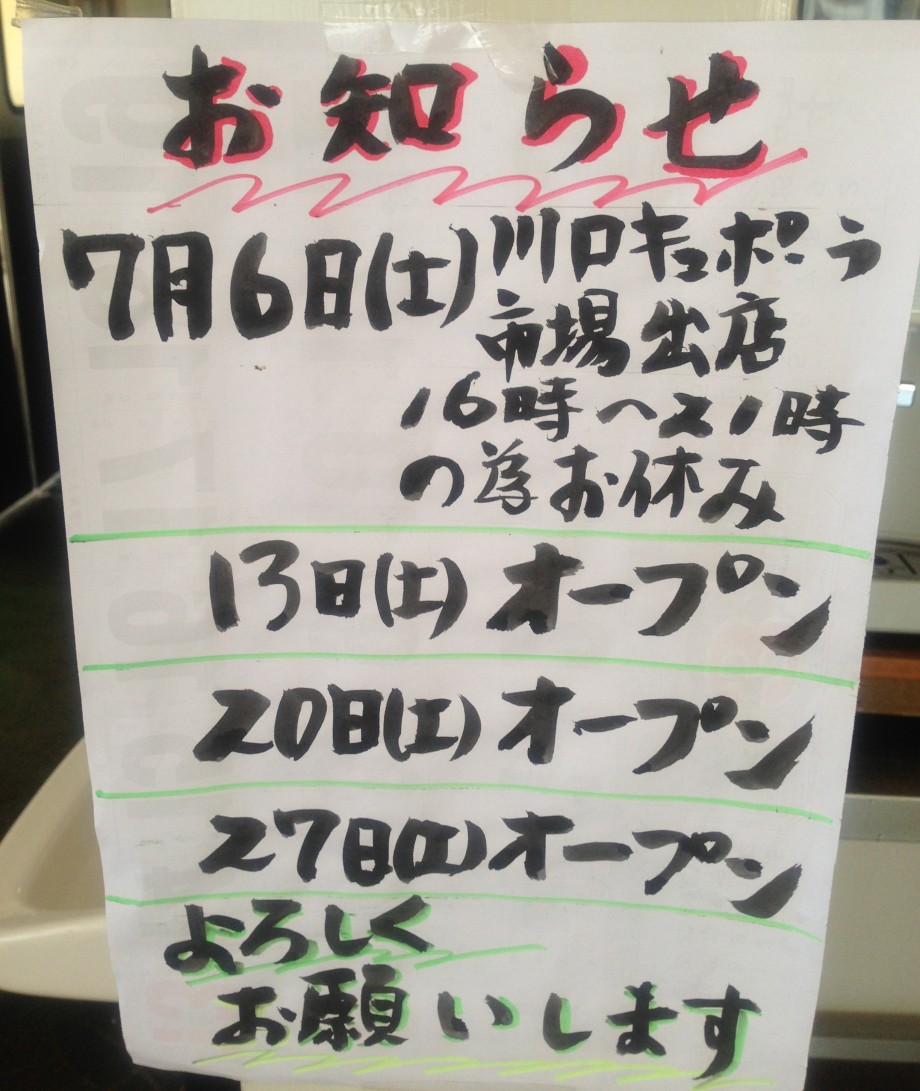 お知らせ
7月6日(土) 川口キュポ・ラ
市場出店
16時〜21時
の為お休み
13日(土) オープン
20日(土) オープン
27日(土) オープン
よろしく
お願いします